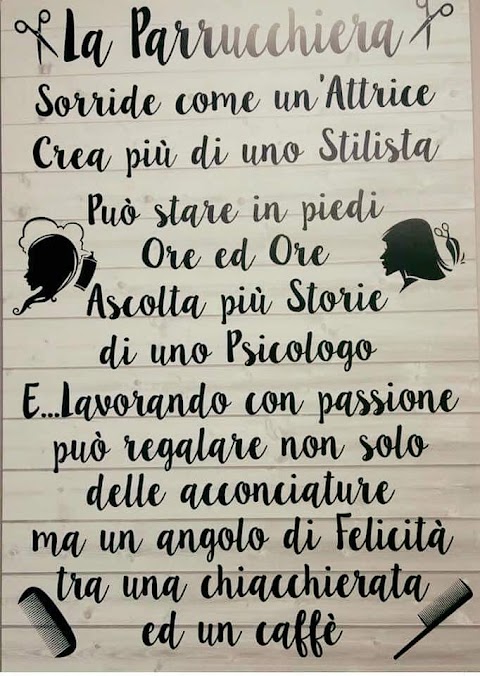 La Parrucchiera
Sorride come un'Attrice
Crea più di uno Stilista
Può stare in piedi
Ore ed Ore
Ascolta più Storie
di uno Psicologo
E...Lavorando con passione
può regalare non solo
delle acconciature
ma un angolo di Felicità
tra una chiacchierata
ed un caffè